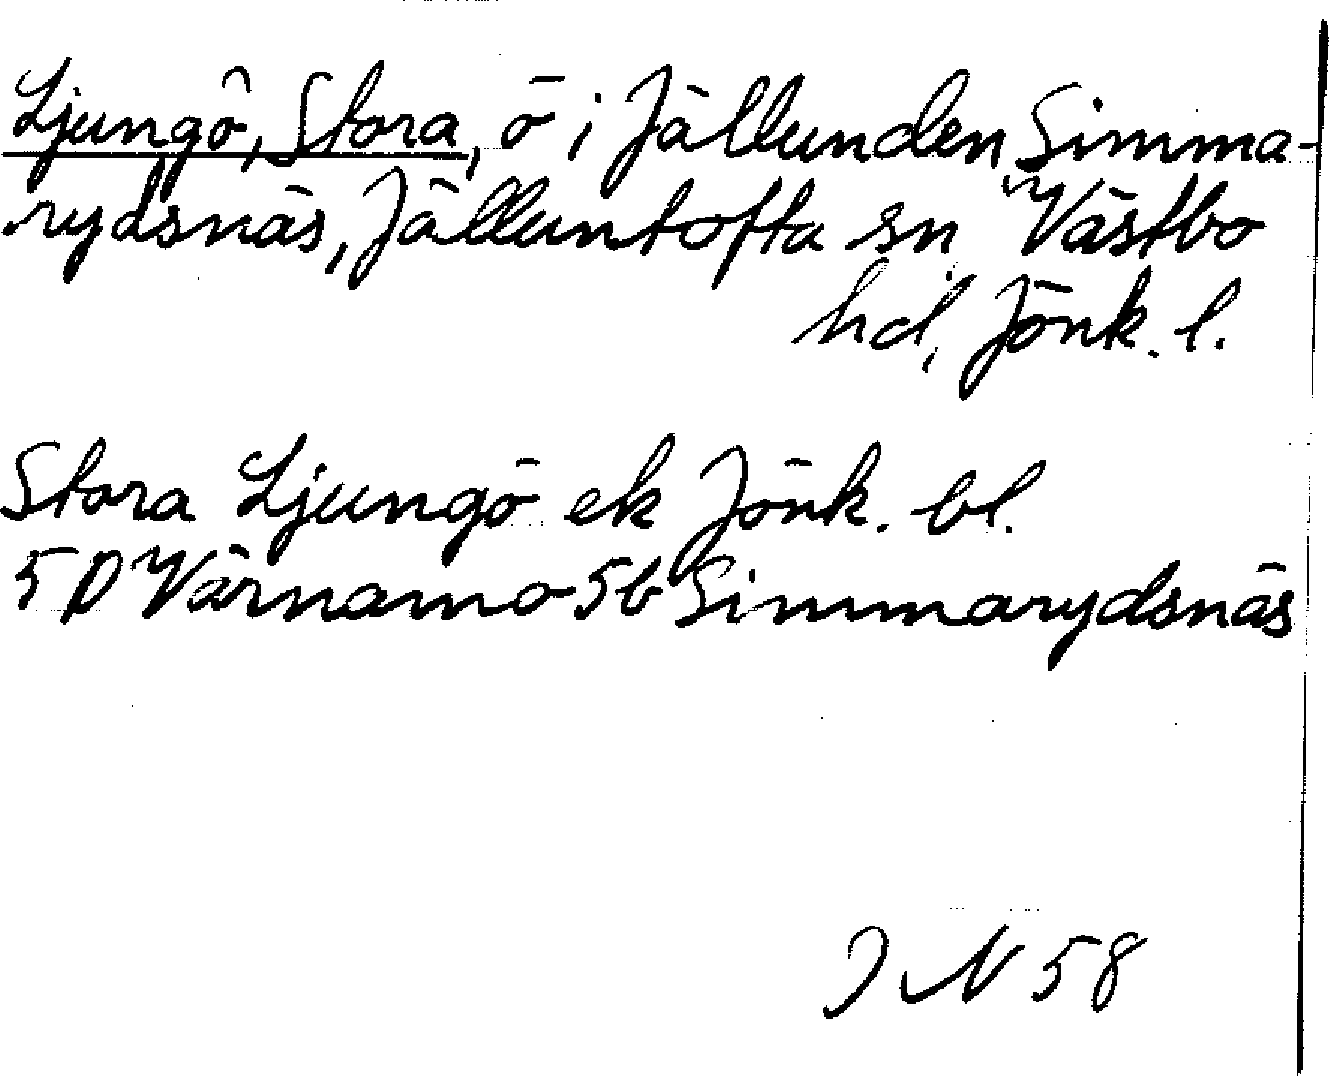 Ljungö, Stora, ö i Jällunden, Simma-
rydsnäs, Jälluntofta sn, Västbo
hd, Jönk. l.
Stora Ljungö ek Jönk. bl.
5 D Värnamo 5b Simmarydsnäs
J N 58